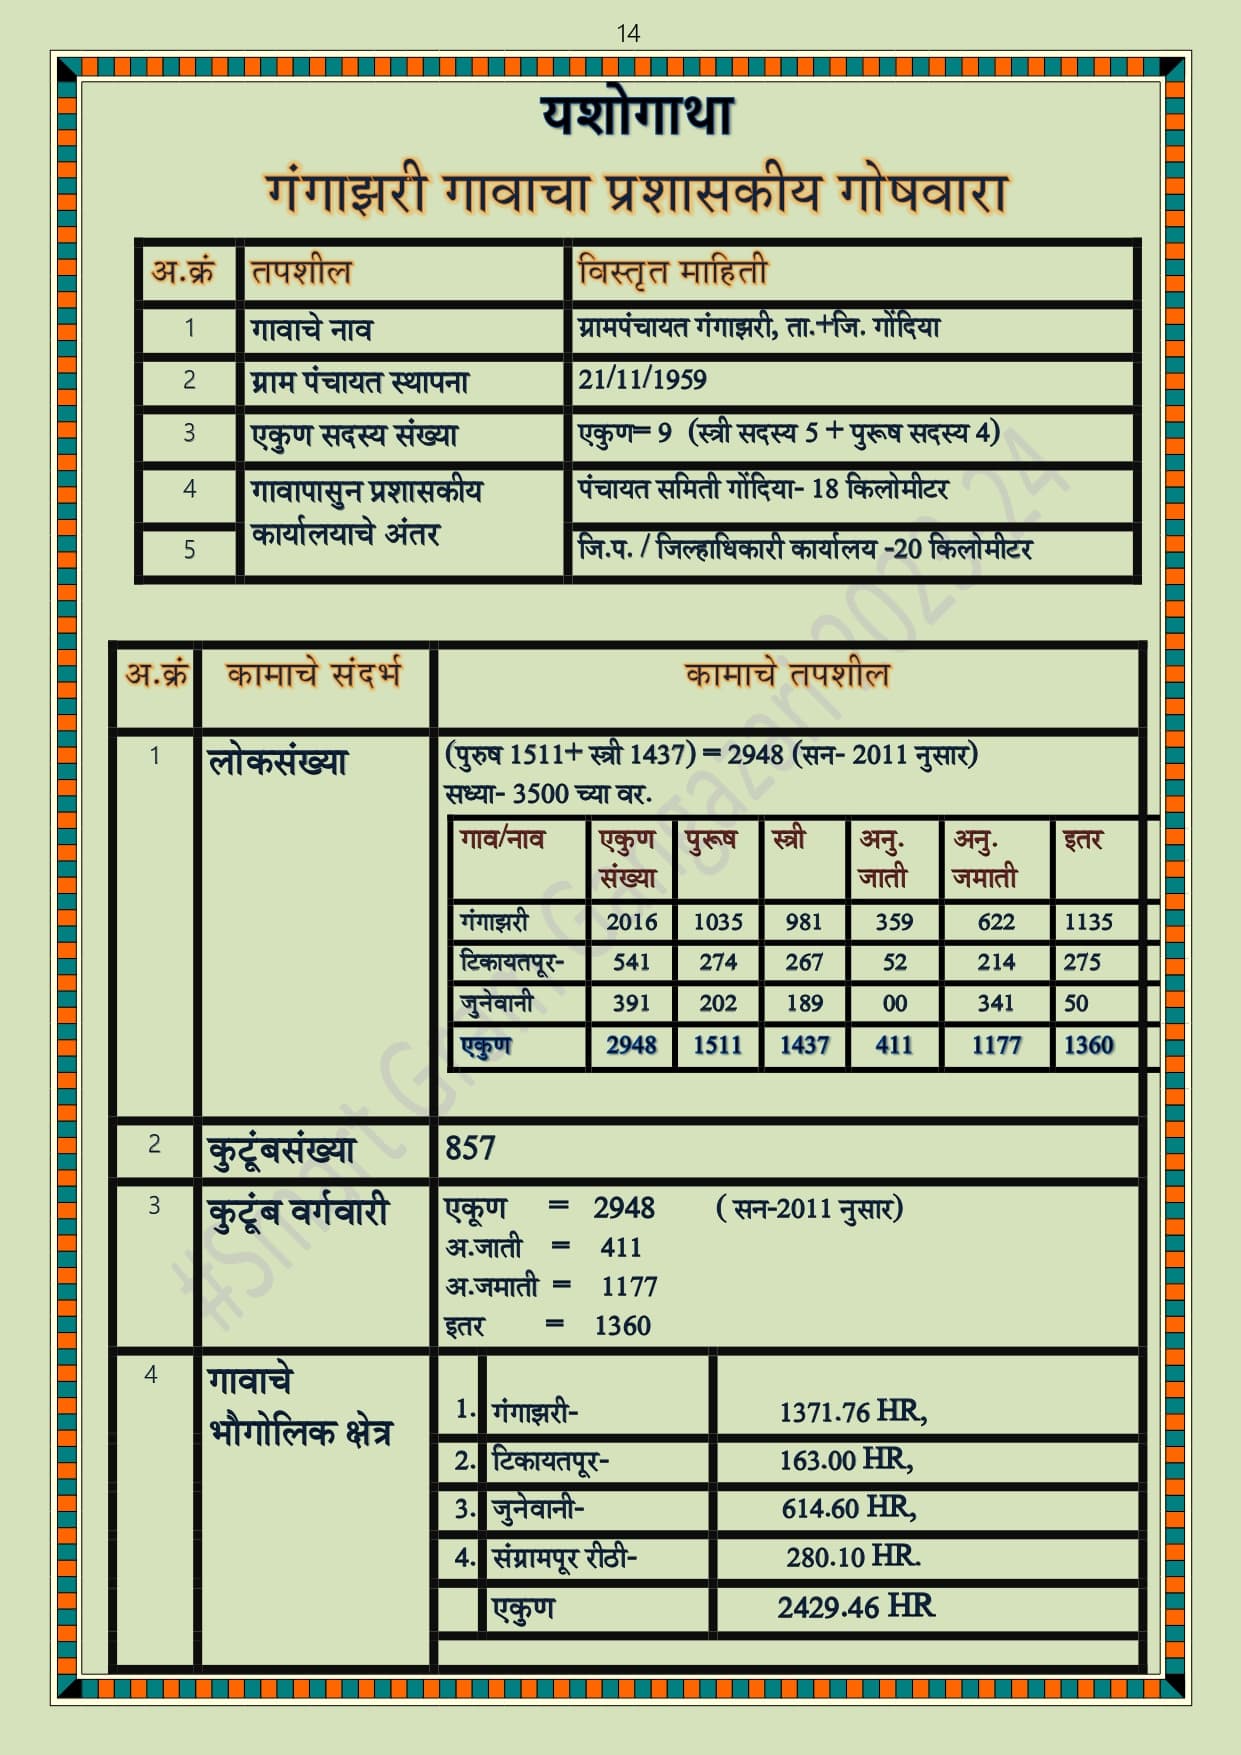 14
यशोगाथा
गंगाझरी गावाचा प्रशासकीय गोषवारा
अ.क्रं तपशील विस्तृत माहिती
1 गावाचे नाव ग्रामपंचायत गंगाझरी, ता.+जि. गोंदिया
2 ग्राम पंचायत स्थापना 21/11/1959
3 एकुण सदस्य संख्या एकुण= 9 (स्त्री सदस्य 5 + पुरूष सदस्य 4)
4 गावापासुन प्रशासकीय पंचायत समिती गोंदिया- 18 किलोमीटर
कार्यालयाचे अंतर
5 जि.प. / जिल्हाधिकारी कार्यालय -20 किलोमीटर
अ.क्रं कामाचे संदर्भ कामाचे तपशील
1 लोकसंख्या (पुरुष 1511+ स्त्री 1437) = 2948 (सन- 2011 नुसार)
सध्या- 3500 च्या वर.
गाव/नाव एकुण पुरूष स्त्री अनु. अनु. इतर
संख्या जाती जमाती
गंगाझरी 2016 1035 981 359 622 1135
टिकायतपूर- 541 274 267 52 214 275
जुनेवानी 391 202 189 00 341 50
एकुण 2948 1511 1437 411 1177 1360
2 कुटूंबसंख्या 857
3 कुटूंब वर्गवारी एकूण = 2948 ( सन-2011 नुसार)
अ.जाती = 411
अ.जमाती = 1177
इतर = 1360
4 गावाचे
भौगोलिक क्षेत्र
1. गंगाझरी- 1371.76 HR,
2. टिकायतपूर- 163.00 HR,
3. जुनेवानी- 614.60 HR,
4. संग्रामपूर रीठी- 280.10 HR.
एकुण 2429.46 HR
#Smart Gram Gangazari 2023-24